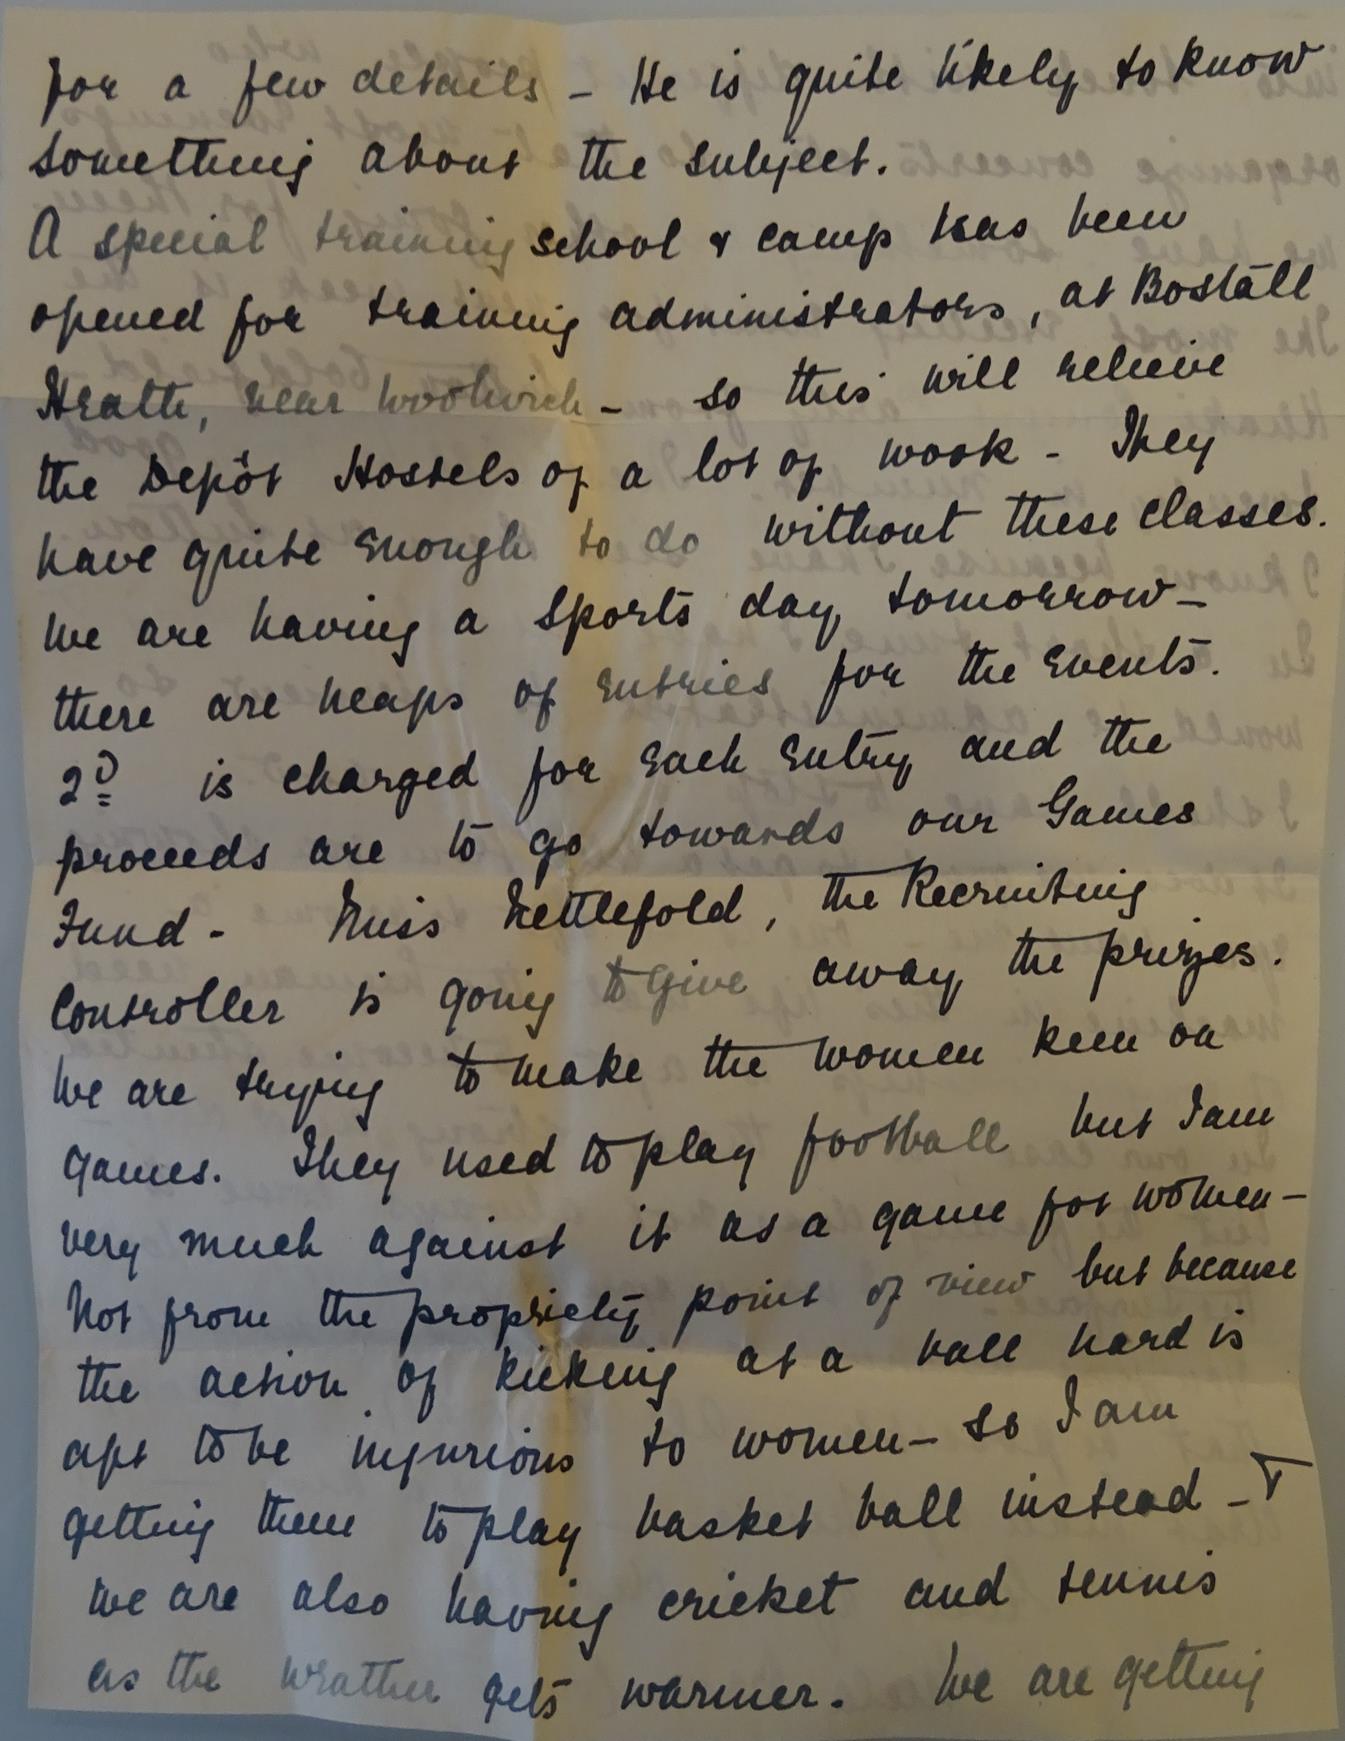 for a few details - He is quite likely to know
something about the subject.
A special training school & camp has been
opened for training administrators, at Bostall
Heath, near Woolwich - so this will relieve
the Depôt Hostels of a lot of work - They
have quite enough to do without these classes.
We are having a Sports day tomorrow -
there are heaps of entries for the events.
2D is charged for each entry and the
proceeds are to go towards our Games
Fund - Miss Nettlefold, the Recruiting
Controller is going to give away the prizes.
We are trying to make the women keen on
games. They used to play football but I am
very much against it as a game for women -
Not from the propriety point of view but because
the action of kicking at a ball hard is
apt to be injurious to women - so I am
getting them to play basket ball instead -
We are also having cricket and tennis
as the weather gets warmer. We are getting